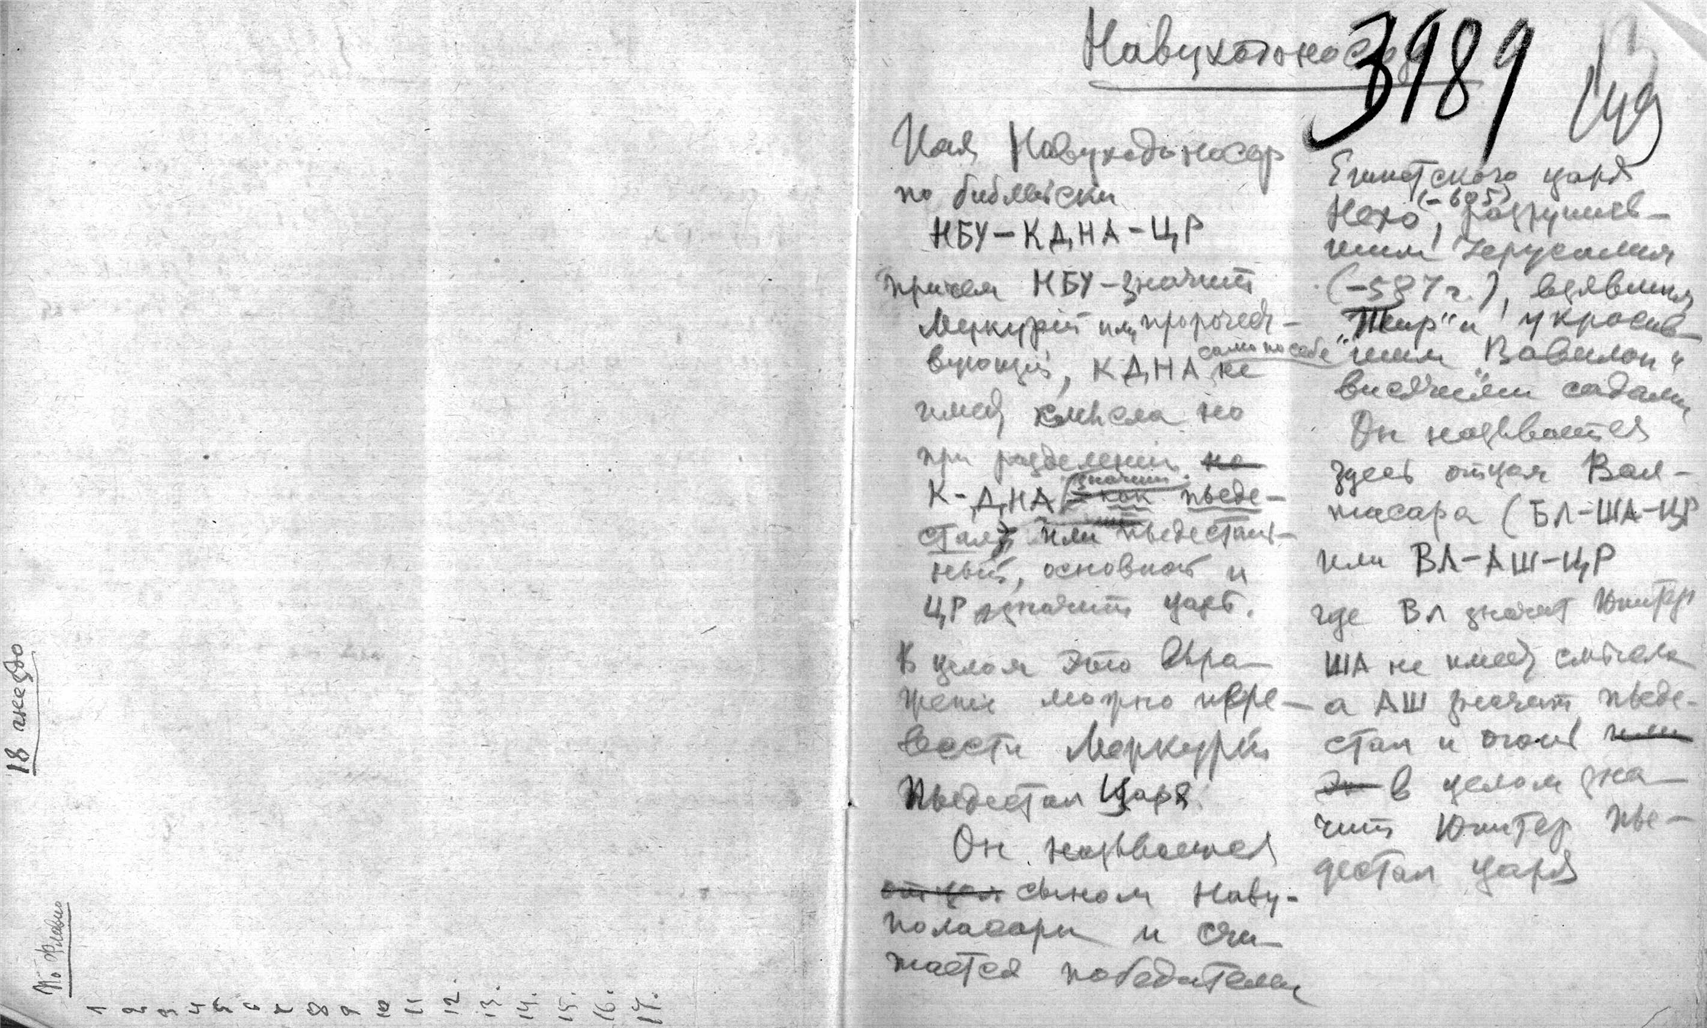 18 гнездо
По Флавию
1
2
3
4
5
6
7
8
9
10
11
12.
13.
14.
15.
16.
17.
Навуходоносор
3989
Имя Навуходоносор
по библейски
НБУ-КДНА-ЦР
причем НБУ-значит
Меркурий или пророчест-
вующий, КДНА само по себе не
имеет смысла но
при разделении не
К-ДНА значит как пьеде-
стал, или пьедесталь-
ный, основной и
ЦР значит царь.
В целом это выра-
жение можно пере-
вести Меркурий
Пьедестал Царя.
Он называется
отцом сыном Наву-
поласара и счи-
тается победителем
Египетского царя
Нехо (-605), разрушив-
шим Иерусалим
(-587 г.), взявшим
"Тир" и украсив-
шим "Вавилон"
висячими садами
Он называется
здесь отцом Вал-
тасара (БЛ-ША-ЦР
или ВЛ-АШ-ЦР
где ВЛ значит Юпитер
ША не имеет смысла
а АШ значит пьеде-
стал и огонь или
в целом зна-
чит Юпитер пье-
дестал царя